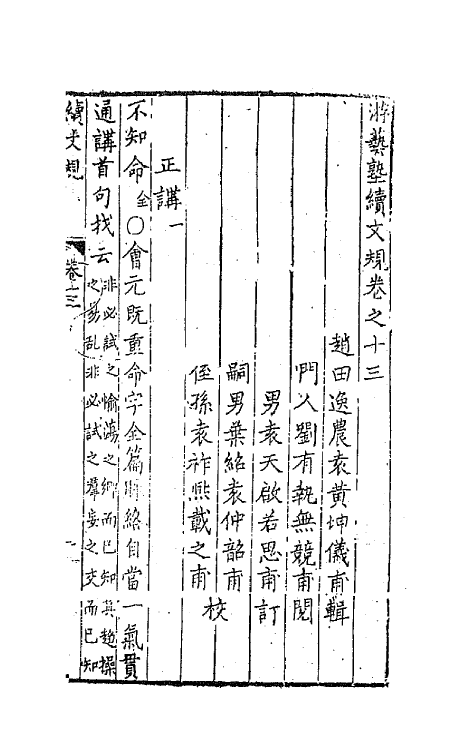 游藝塾續文規卷之十三
趙田逸農袁黃坤儀甫輯
門人劉有執無競甫閱
男袁天啟若思甫訂
嗣男葉紹袁仲韶甫
侄孫袁祚熙載之甫
校
正講一
不知命全○會元既重命字全篇脉絡自當一氣貫
通講首句找云
非必試之愉蕩之鄉而已知其趍操
之易乱非必試之羣妄之交而已知
續文規
卷十三